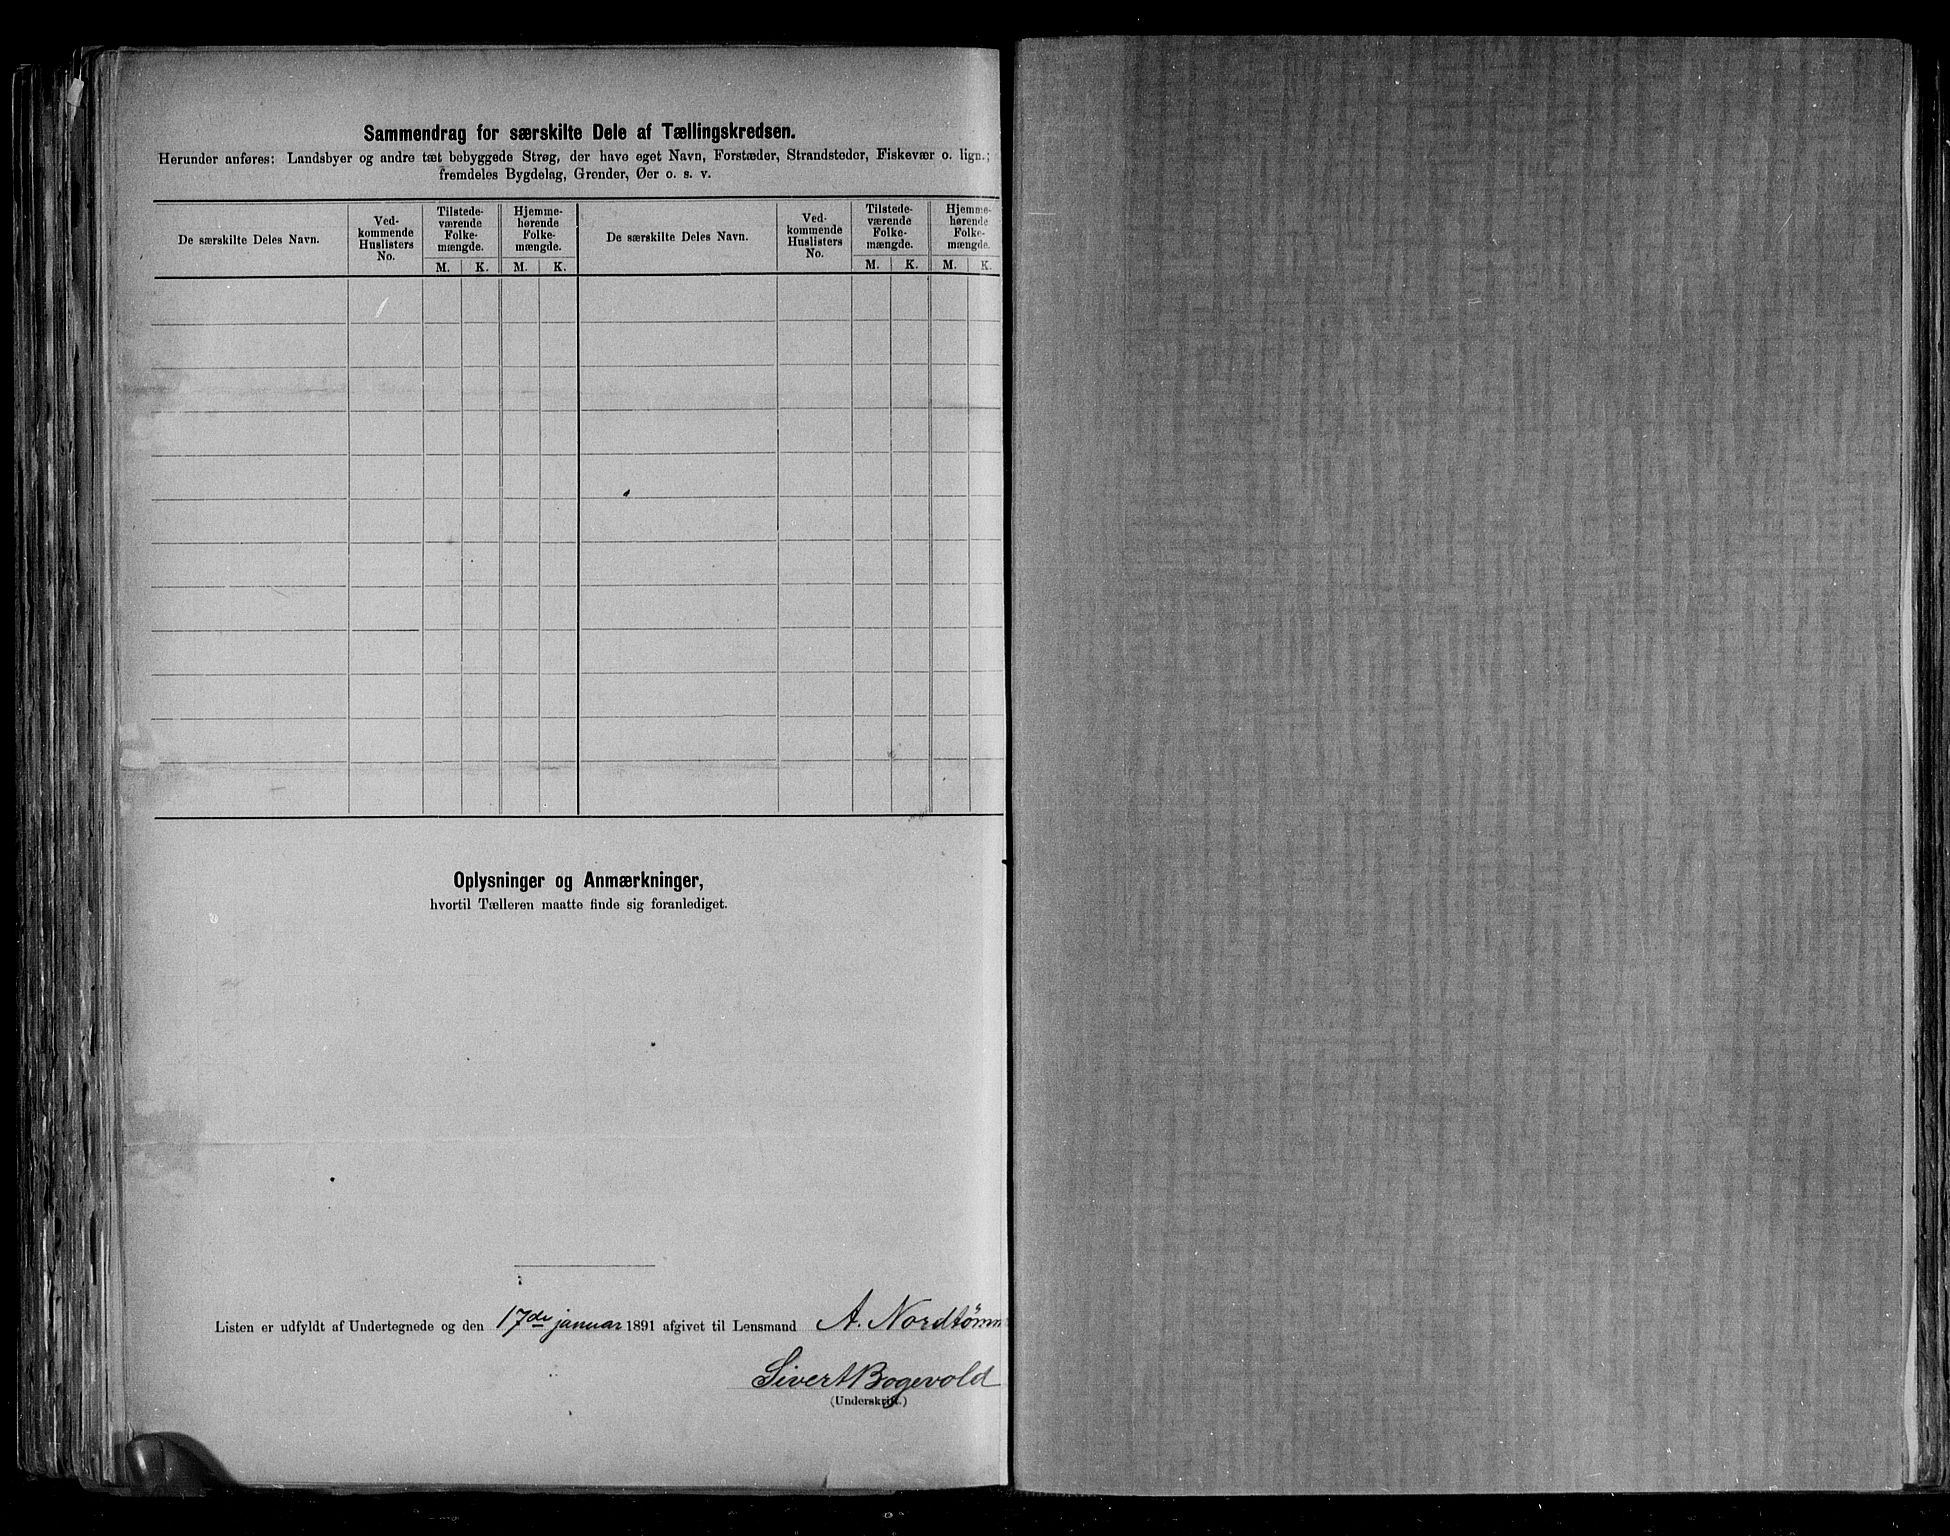 Sammendrag for særskilte Dele af Tællingskredsen.
Herunder anføres: Landsbyer og andre tæt bebyggede Strøg, der have eget Navn, Forstæder, Strandsteder, Fiskevær o. lign.;
fremdeles Bygdelag, Grender, Øer o. s. v.
De særskilte Deles Navn.
Ved-
kommende
Huslisters
No.
Tilstede-
værende
Folke-
mængde.
M. K.
Hjemme-
hørende
Folke-
mængde.
M. K.
De særskilte Deles Navn.
Ved-
kommende
Huslisters
No.
Tilstede-
værende
Folke-
mængde.
M. K.
Hjemme-
hørende
Folke-
mængde.
M. K.
Oplysninger og Anmærkninger,
hvortil Tælleren maatte finde sig foranlediget.
Listen er udfyldt af Undertegnede og den 17de januar 1891 afgivet til Lensmand A. Nordtömm
Sivert Bogevold
(Underskrift.)